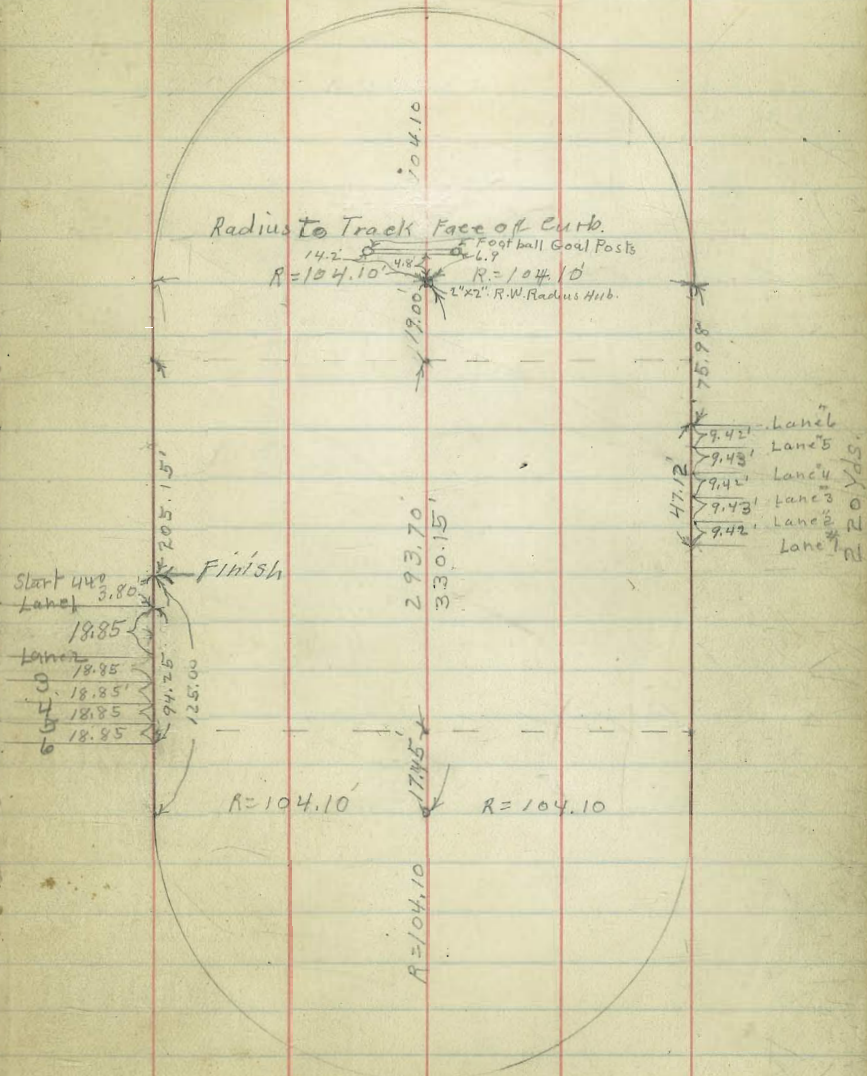 104.10
Radius To Track Face of Curb.
Football Goal Posts
14.2' 4.8 6.9
R=104.10' R=104.10'
2"x2" R.W. Radius Hub.
19.00'
75.98'
Lane 6
9.42' Lane #5
9.43' Lane #4
9.42' Lane #3
9.43' Lane #2
9.42' Lane #1
47.12'
220 Yds.
205.15'
293.70'
330.15'
Finish
Start 440
Lane 1 3.80'
18.85
Lane 2
18.85
3
18.85'
4
18.85
5
18.85
6
94.25
125.00
17.45'
R=104.10' R=104.10
R=104.10